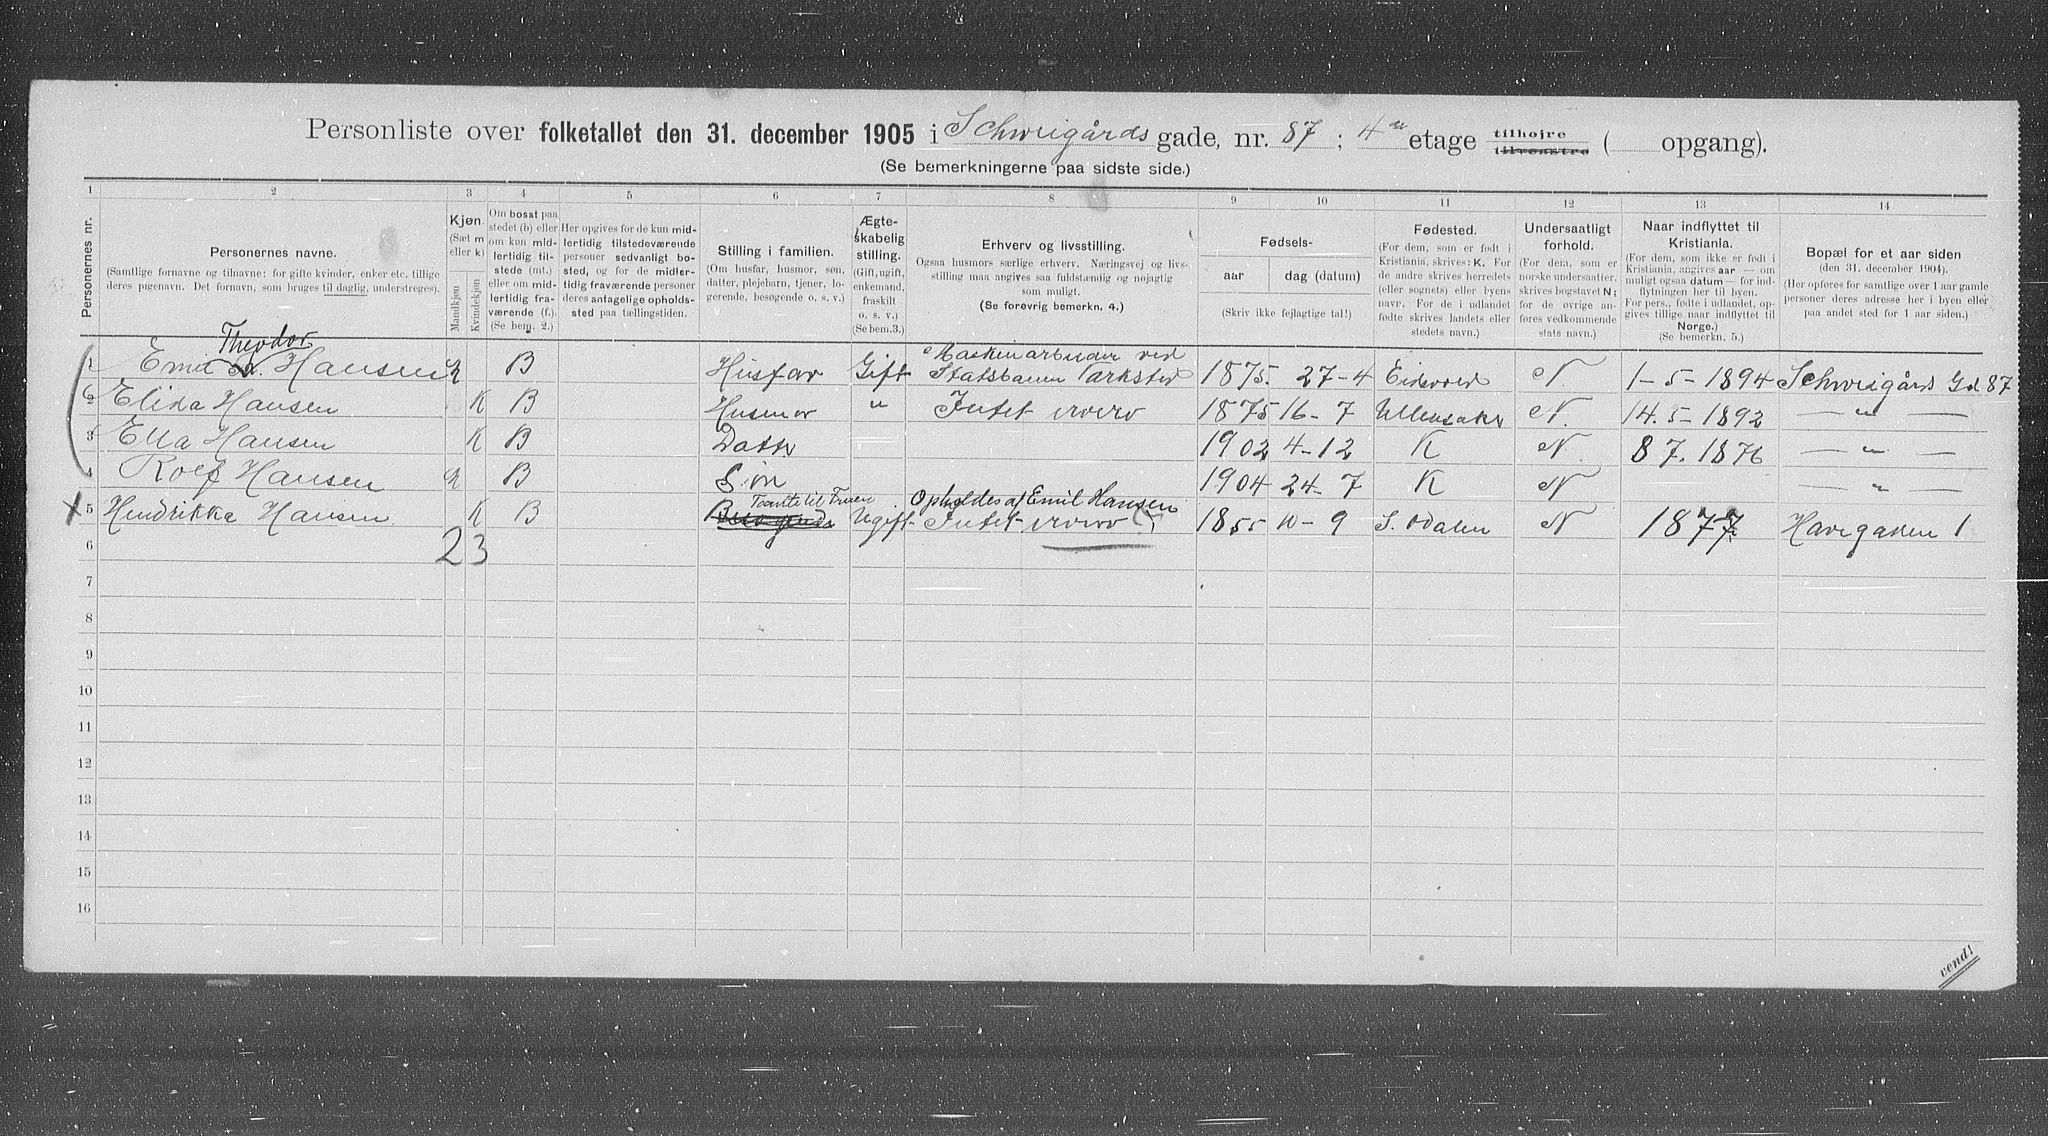 Personliste over folketallet den 31. december 1905 i Schweigårds gade, nr. 87 ; 4de etage tilhøjre tilvenstre ( opgang).
(Se bemerkningerne paa sidste side.)
1 2 3 4 5 6 7 8 9 10 11 12 13 14
Personernes nr.
Personernes navne.
(Samtlige fornavne og tilnavne; for gifte kvinder, enker etc. tillige deres pigenavn. Det fornavn, som bruges til daglig, understreges).
Kjøn.
(Sæt m eller k)
Mandkjøn
Kvindekjøn
Om bosat paa stedet (b) eller om kun midlertidig tilstede (mt.) eller om midlertidig fraværende (f.) (Se bem. 2.)
Her opgives for de kun midlertidig tilstedeværende personer sedvanligt bosted, og for de midlertidig fraværende personer deres antagelige opholdssted paa tællingstiden.
Stilling i familien.
(Om husfar, husmor, søn, datter, plejebarn, tjener, logerende, besøgende o. s. v.)
Ægteskabelig stilling.
(Gift, ugift, enkemand, fraskilt o. s. v.) (Se bem.3.)
Erhverv og livsstilling.
Ogsaa husmors særlige erhverv. Næringsvej og livsstilling maa angives saa fuldstændig og nøjagtig som muligt.
(Se forøvrig bemerkn. 4.)
Fødsels-
aar dag (datum)
(Skriv ikke fejlagtige tal!)
Fødested.
(For dem, som er født i Kristiania, skrives: K. For de andre skrives herredets (eller sognets) eller byens navn. For de i udlandet fødte skrives landets eller stedets navn.)
Undersaatligt forhold.
(For dem, som er norske undersaatter, skrives bogstavet N; for de øvrige anføres vedkommende stats navn.)
Naar indflyttet til Kristiania.
(For dem, som ikke er født i Kristiania, angives aar — om muligt ogsaa datum — for indflytningen her til byen. For pers., fødte i udlandet, opgives tillige naar indflyttet til Norge.) (Se bemerkn. 5.)
Bopæl for et aar siden
(den 31. december 1904).
(Her opføres for samtlige over 1 aar gamle personer deres adresse her i byen eller paa andet sted for 1 aar siden.)
Theodor
1 Emil Hansen B Husfar Gift Maskinarbeider ved Statsbanen Værksted 1875. 27-4 Eidsvold N. 1-5-1894 Schweigårds Gd 87
2 Elida Hansen K B Husmor " Intet erverv 1875 16-7 Ullensaker N. 14.5-1892 — " —
3 Ella Hansen K B Datter 1902 4-12 K N. 8 7. 1876 — " —
4 Rolf Hansen B Søn 1904 24-7 K N — " —
Tante til Fruen Opholdes af Emil Hansen
5 Hendrikke Hansen K B Ugift Intet erverv 1855 10-9 S. Odalen N 1877 Havegaden 1
6 2 3
7
8
9
10
11
12
13
14
15
16
vend!